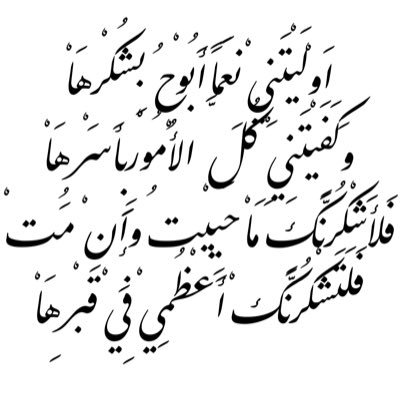 أَوْلَيْتَنِي نِعَمًا أَبُوحُ بِشُكْرِهَا
وَكَفَيْتَنِي كُلَّ الأُمُورِ بِأَسْرِهَا
فَلَأَشْكُرَنَّكَ مَا حَيِيتُ وَإِنْ أَمُتْ
فَلَتَشْكُرَنَّكَ أَعْظُمِي فِي قَبْرِهَا